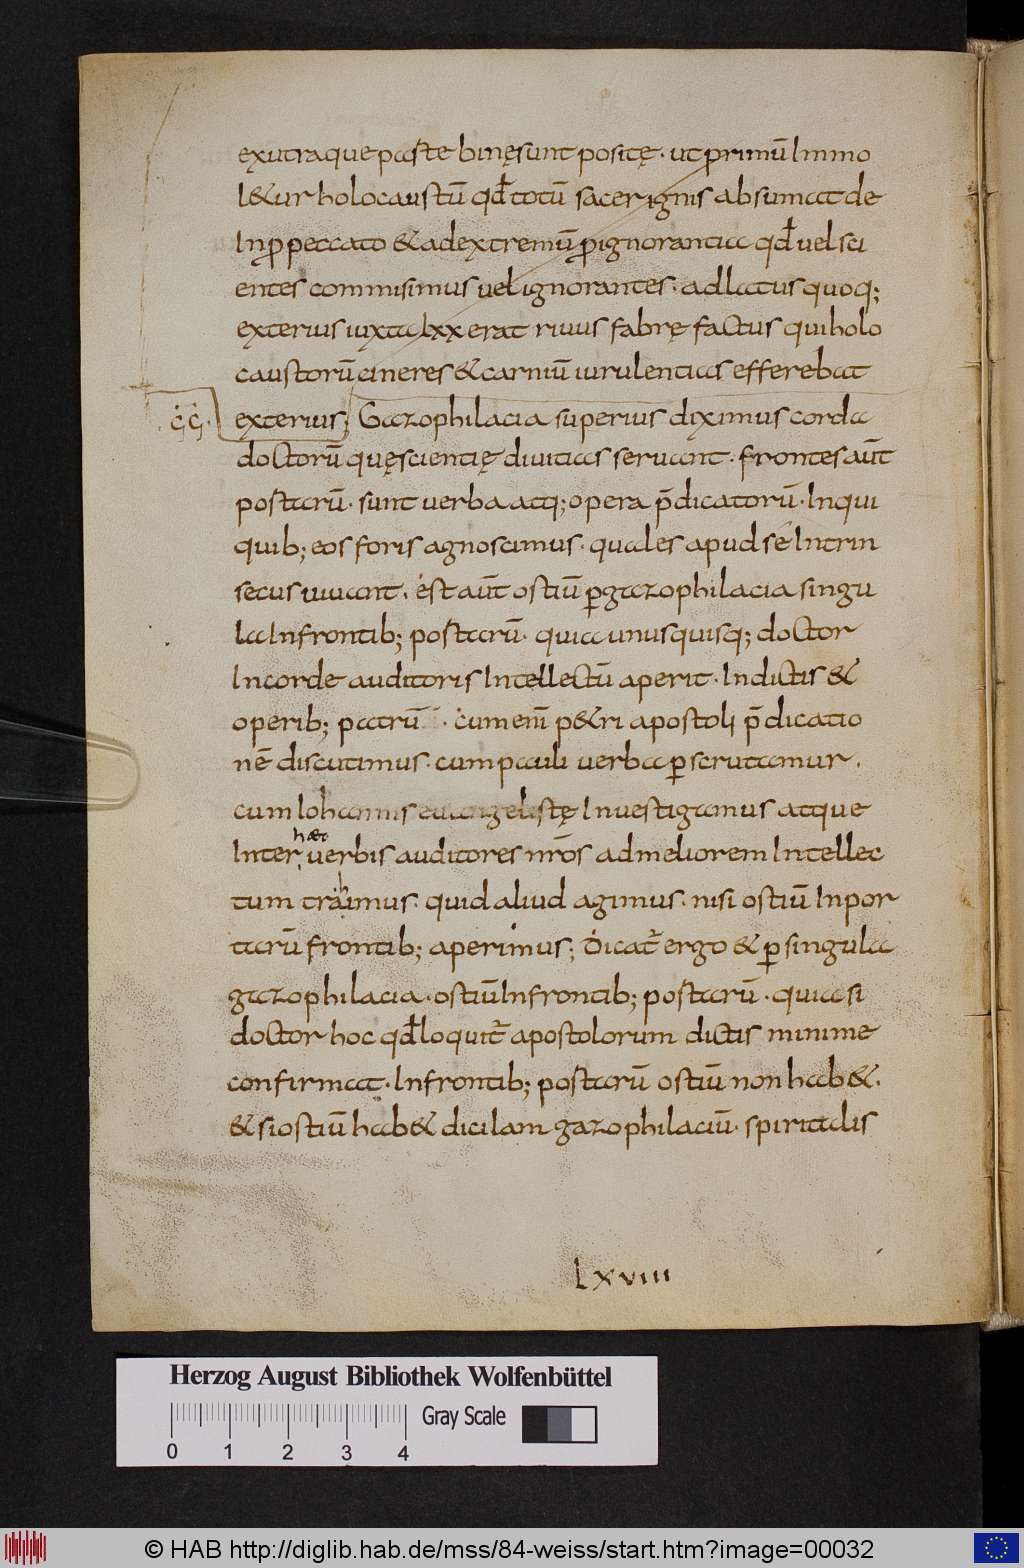 exutraque parte binęsunt positę· ut primū Immo
l&ur holocaustū qđ totū sacer ignis absumat de
In ꝓ peccato & ad extremū ꝓ ignorantia qđ vel sci
entes commisimus vel ignorantes· ad latus quoq;
exterius iuxta lxx erat rivus fabrę factus qui holo
caustorū cineres & carniū iurulentias efferebat
ĢĢ· exterius; Gazophilacia superius diximus corda
doctorū quę scientię divitias servant· frontes aūt
postarū· sunt verba atq; opera p̄dicatorū· In qui
quib; eos foris agnoscimus· quales apud se Intrin
secus vivant· est aūt ostiū ꝑ gazophilacia singu
la In frontib; postarū· quia unusquisq; doctor
In corde auditoris Intellectū aperit· In dictis &
operib; patrū· cum enī p&ri apostoli p̄dicatio
nē discutimus· cum pauli verba ꝑscrutamur·
cum Iohannis evangelistę Investigamus atque
Inter hæc verbis auditores nr̄os ad meliorem Intellec
tum trahimus· quid aliud agimus· nisi ostiū In por
tarū frontib; aperimus; Dicat̄ ergo & ꝑ singula
gazophilacia· ostiū In frontib; postarū· quia si
doctor hoc qđ loquit̄ apostolorum dictis minime
confirmat· In frontib; postarū ostiū non hab&·
& si ostiū hab& dici lam gazophilaciū· spiritalis
lxviii
Herzog August Bibliothek Wolfenbüttel
Gray Scale
0 1 2 3 4
© HAB http://diglib.hab.de/mss/84-weiss/start.htm?image=00032